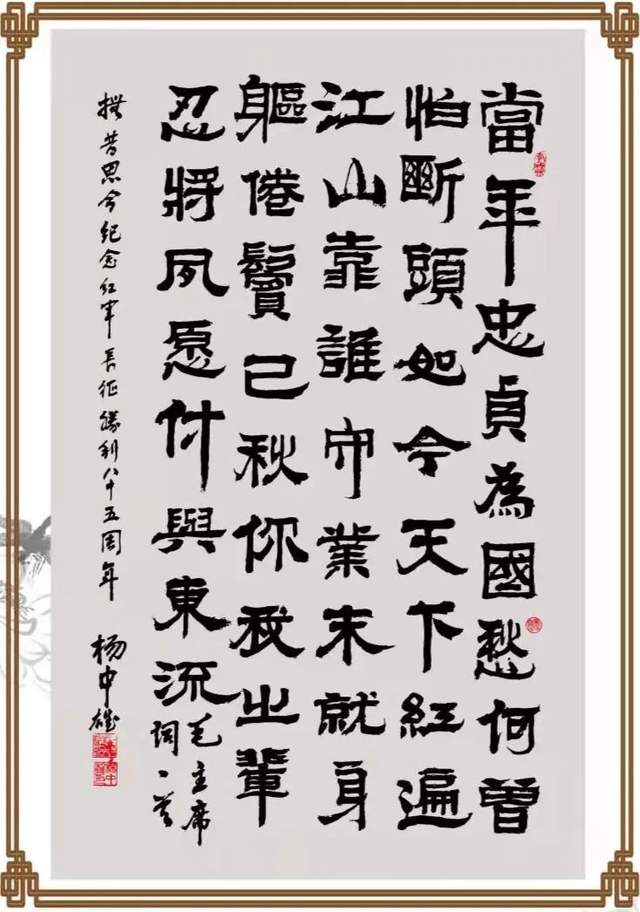 當年忠貞為國愁何曾
怕斷頭如今天下紅遍
江山靠誰守業未就身
軀倦鬢已秋你我之輩
忍將夙愿付與東流
毛主席
詞一首
撫昔思今紀念紅軍長征勝利八十五周年
杨中雄